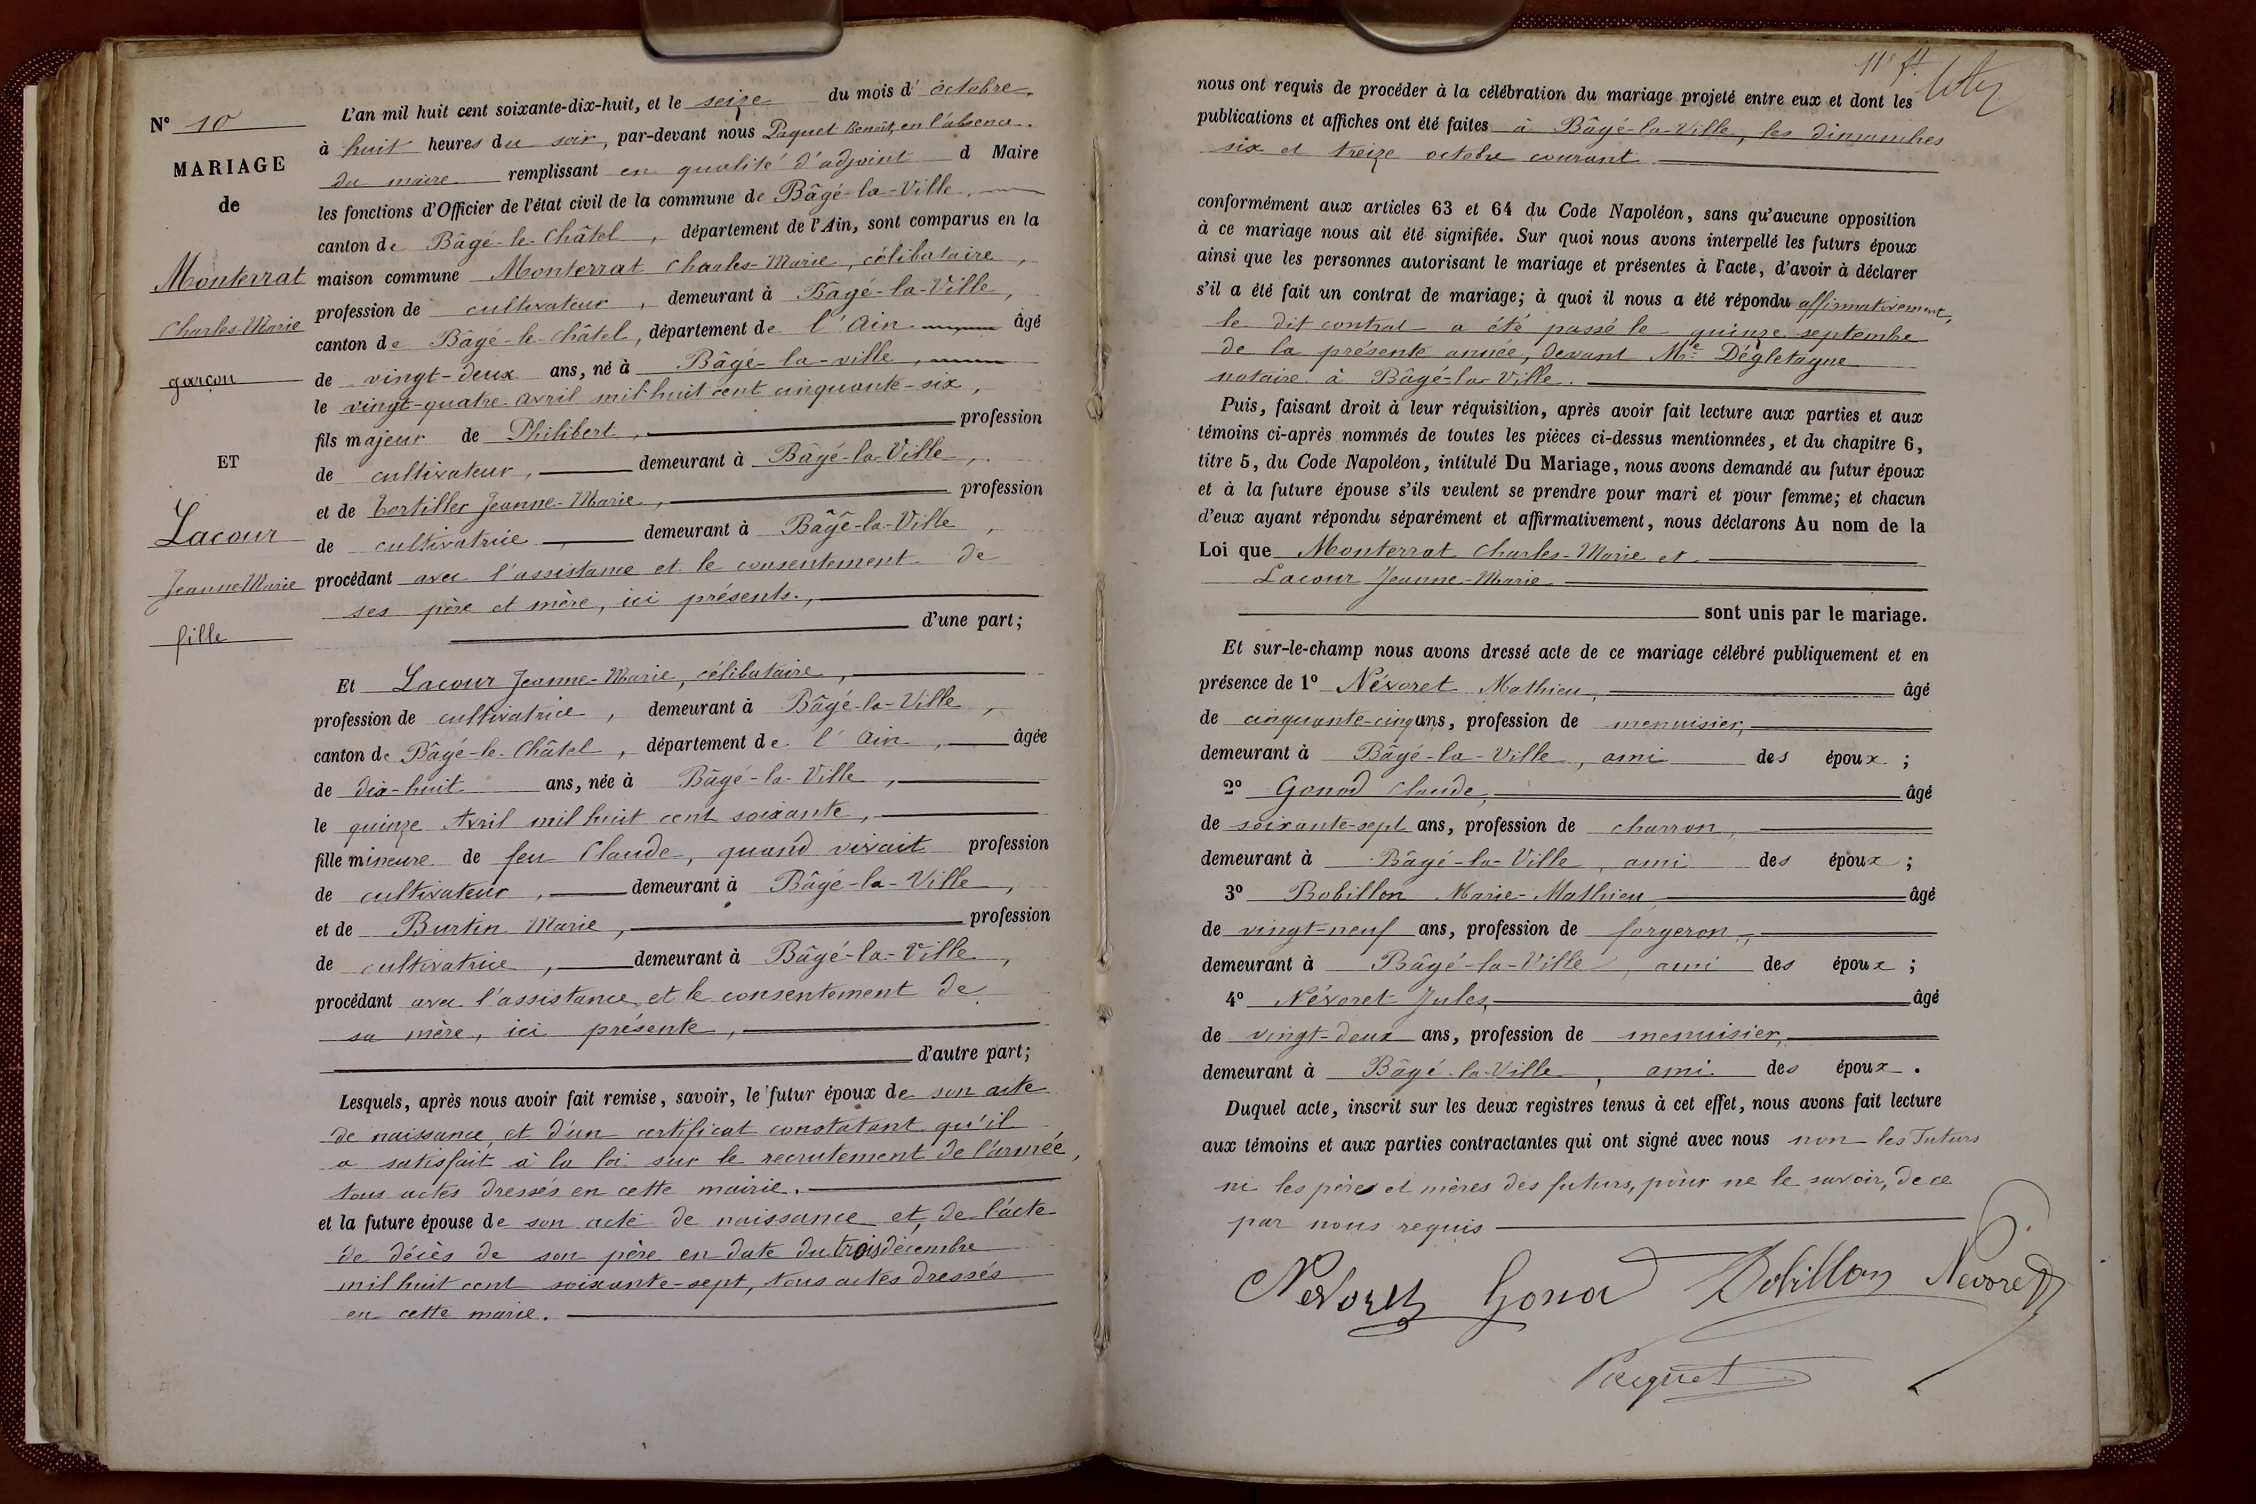 N° 10
MARIAGE
de
Monterrat
Charles-Marie
garçon
ET
Lacour
Jeanne Marie
fille
L'an mil huit cent soixante-dix-huit, et le seize du mois d' octobre,
à huit heures du soir, par-devant nous Paquet Benoît, en l'absence
du maire remplissant en qualité d'adjoint d Maire
les fonctions d'Officier de l'état civil de la commune de Bâgé-la-Ville,
canton de Bâgé-le-Châtel, département de l'Ain, sont comparus en la
maison commune Monterrat Charles-Marie, célibataire,
profession de cultivateur, demeurant à Bâgé-la-Ville,
canton de Bâgé-le-Châtel, département de l'Ain âgé
de vingt-deux ans, né à Bâgé-la-ville,
le vingt-quatre avril mil huit cent cinquante-six,
fils majeur de Philibert, profession
de cultivateur, demeurant à Bâgé-la-Ville,
et de Tortiller Jeanne-Marie, profession
de cultivatrice, demeurant à Bâgé-la-Ville,
procédant avec l'assistance et le consentement de
ses père et mère, ici présents,
d'une part;
Et Lacour Jeanne-Marie, célibataire,
profession de cultivatrice, demeurant à Bâgé-la-Ville,
canton de Bâgé-le-Châtel, département de l'Ain, âgée
de dix-huit ans, née à Bâgé-la-Ville,
le quinze Avril mil huit cent soixante,
fille mineure de feu Claude, quand vivait profession
de cultivateur, demeurant à Bâgé-la-Ville,
et de Burtin Marie, profession
de cultivatrice, demeurant à Bâgé-la-Ville,
procédant avec l'assistance et le consentement de
sa mère, ici présente,
d'autre part;
Lesquels, après nous avoir fait remise, savoir, le futur époux de son acte
de naissance, et d'un certificat constatant qu'il
a satisfait à la loi sur le recrutement de l'armée,
tous actes dressés en cette mairie.
et la future épouse de son acte de naissance et de l'acte
de décès de son père en date du trois décembre
mil huit cent soixante-sept, tous actes dressés
en cette marie.
11e ft.
nous ont requis de procéder à la célébration du mariage projeté entre eux et dont les
publications et affiches ont été faites à Bâgé-la-Ville, les dimanches
six et treize octobre courant
conformément aux articles 63 et 64 du Code Napoléon, sans qu'aucune opposition
à ce mariage nous ait été signifiée. Sur quoi nous avons interpellé les futurs époux
ainsi que les personnes autorisant le mariage et présentes à l'acte, d'avoir à déclarer
s'il a été fait un contrat de mariage; à quoi il nous a été répondu affirmativement,
le dit contrat a été passé le quinze septembre
de la présente année, devant Me Dégletagne
notaire à Bâgé-la-Ville.
Puis, faisant droit à leur réquisition, après avoir fait lecture aux parties et aux
témoins ci-après nommés de toutes les pièces ci-dessus mentionnées, et du chapitre 6,
titre 5, du Code Napoléon, intitulé Du Mariage, nous avons demandé au futur époux
et à la future épouse s'ils veulent se prendre pour mari et pour femme; et chacun
d'eux ayant répondu séparément et affirmativement, nous déclarons Au nom de la
Loi que Monterrat Charles-Marie et
Lacour Jeanne-Marie
sont unis par le mariage.
Et sur-le-champ nous avons dressé acte de ce mariage célébré publiquement et en
présence de 1° Névoret Mathieu, âgé
de cinquante-cinq ans, profession de menuisier,
demeurant à Bâgé-la-Ville, ami des époux;
2° Gonod Claude, âgé
de soixante-sept ans, profession de charron,
demeurant à Bâgé-la-Ville, ami des époux;
3° Bobillon Marie-Mathieu âgé
de vingt-neuf ans, profession de forgeron,
demeurant à Bâgé-la-Ville, ami des époux;
4° Névoret Jules, âgé
de vingt-deux ans, profession de menuisier,
demeurant à Bâgé-la-Ville, ami des époux.
Duquel acte, inscrit sur les deux registres tenus à cet effet, nous avons fait lecture
aux témoins et aux parties contractantes qui ont signé avec nous non les futurs
ni les pères et mères des futurs, pour ne le savoir, de ce
par nous requis
Nevoret Gonod Bobillon Nevoret
Paquet